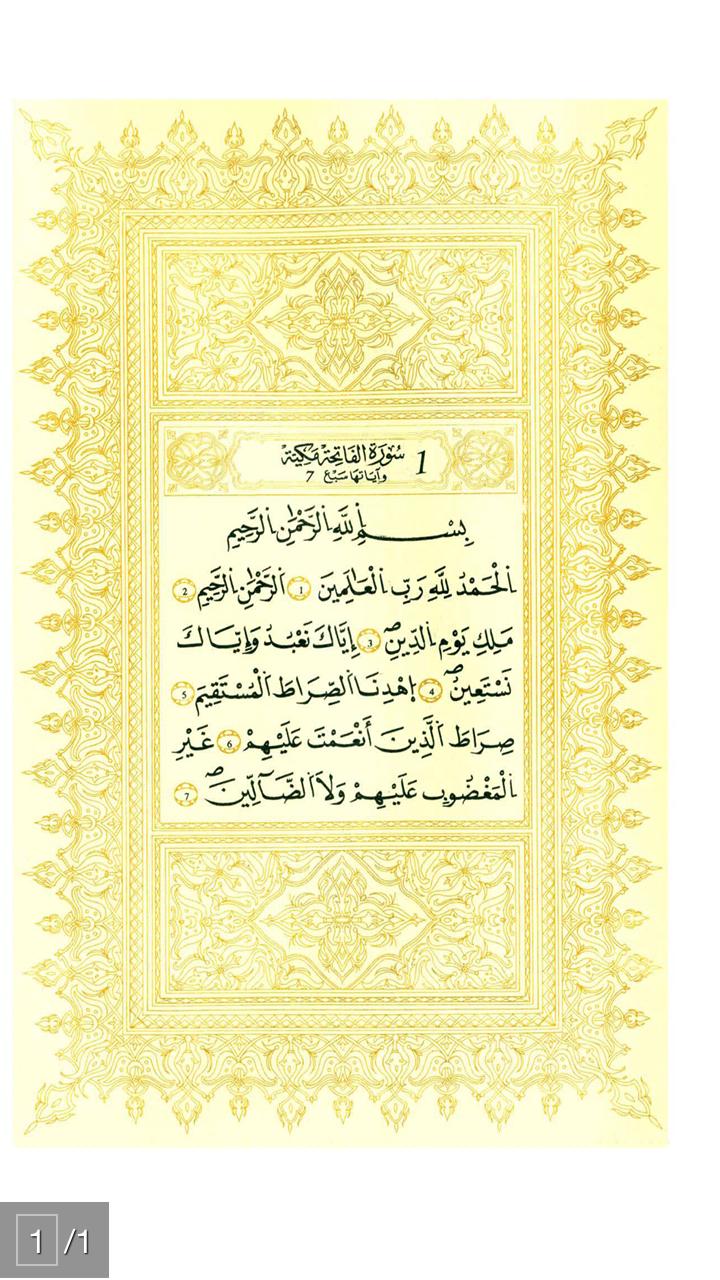 1 سُورَةُ الفَاتِحَةِ مَكِّيَّة
وآيَاتهَا سَبْع 7
بِسْمِ اِ۬للَّهِ اِ۬لرَّحْمَٰنِ اِ۬لرَّحِيمِ
اَ۬لْحَمْدُ لِلَّهِ رَبِّ اِ۬لْعَٰلَمِينَ 1 اَ۬لرَّحْمَٰنِ اِ۬لرَّحِيمِ 2
مَلِكِ يَوْمِ اِ۬لدِّينِۖ 3 إِيَّاكَ نَعْبُدُ وَإِيَّاكَ
نَسْتَعِينُۖ 4 اُ۪هْدِنَا اَ۬لصِّرَٰطَ اَ۬لْمُسْتَقِيمَ 5
صِرَٰطَ اَ۬لَّذِينَ أَنْعَمْتَ عَلَيْهِمْ 6 غَيْرِ
اِ۬لْمَغْضُوبِ عَلَيْهِمْ وَلَا اَ۬لضَّآلِّينَۖ 7
1 /1